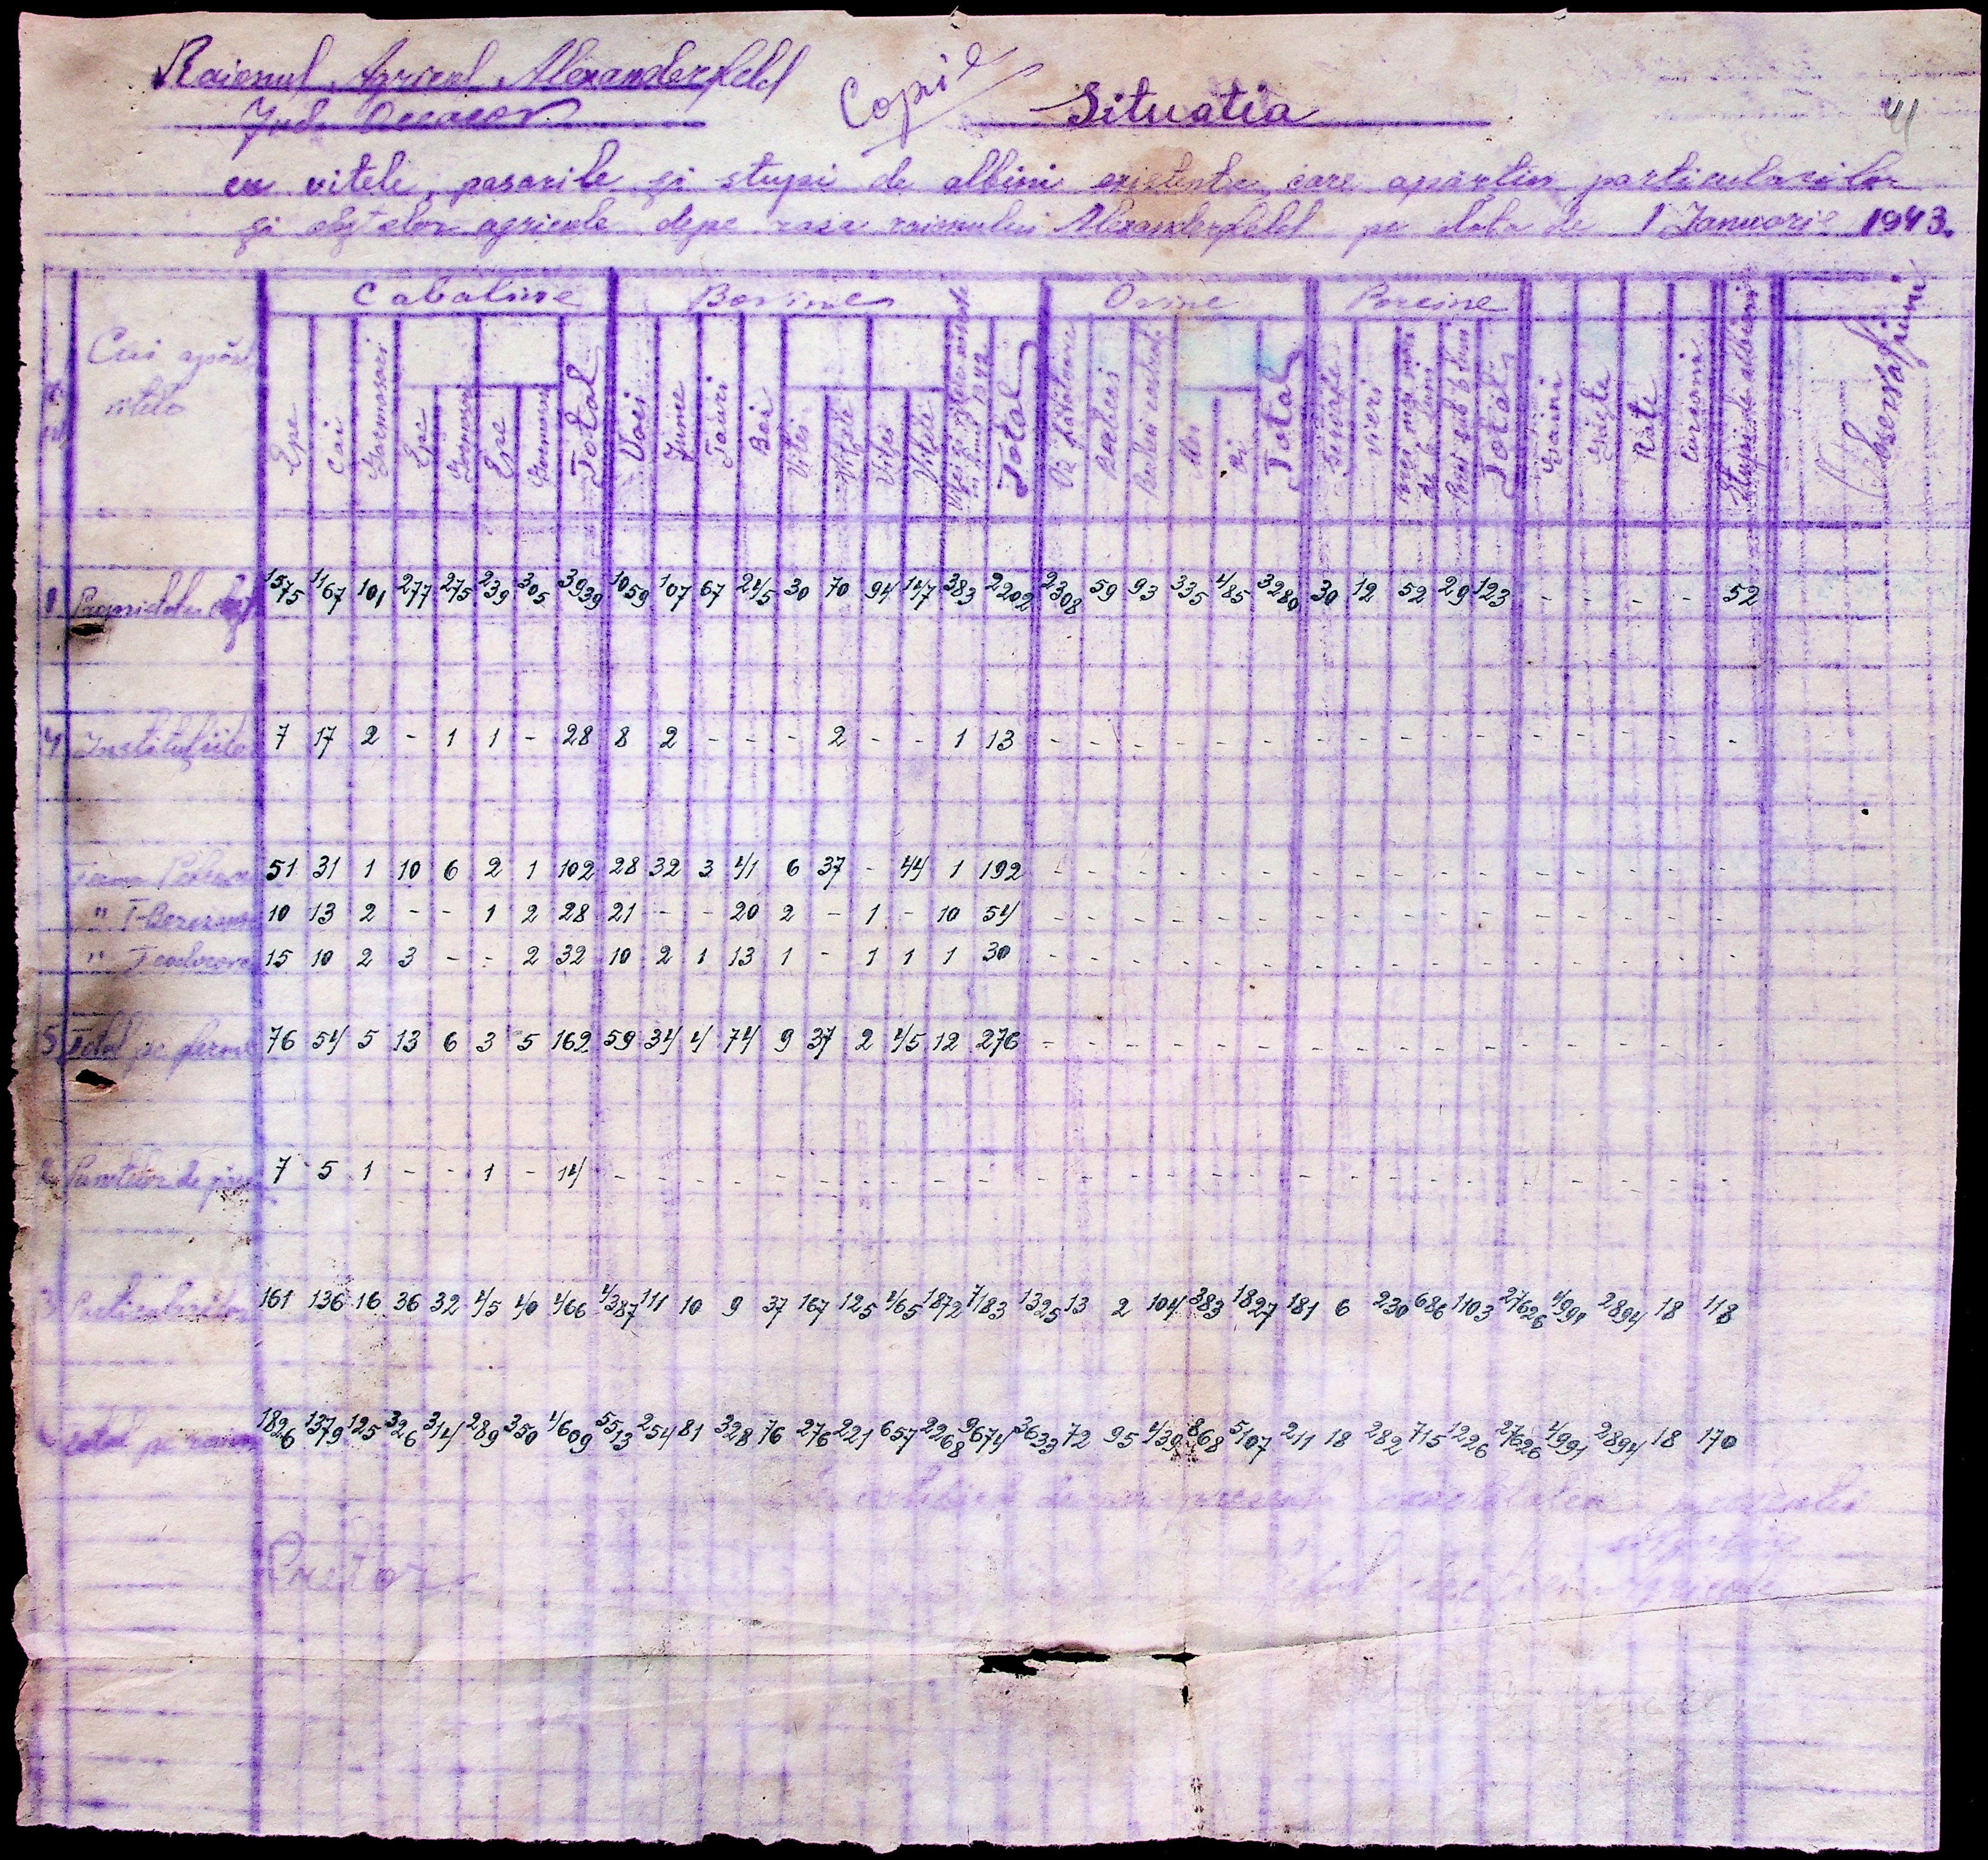 Raionul Agricol Alexanderfeld
Jud. Oceacov
Copie
Situatia
41
cu vitele, pasarile și stupi de albini existente care apărtin particularilor
și obștelor agricole depe raza raionului Alexanderfeld pe data de 1 Ianuarie 1943.
Cui apărt. vitele
Cabaline Bovine Ovine Porcine
Epe Cai Garmasari Epe Garmasari Epe Garmasari Total Vaci June Tauri Boi Vitei Vitele Vitei Vitele Total Oi Berbeci Miei Total Scroafe Vieri Porci sub 6 luni Total Gaini Gâște Rațe Curcani Stupi de albini Observațiuni
1 Proprietatea 1575 1167 101 277 275 239 305 3939 1059 107 67 245 30 70 94 147 383 2202 2308 59 93 335 485 3280 30 12 52 29 123 - - - - 52
4 Instituțiilor 7 17 2 - 1 1 - 28 8 2 - - - 2 - - 1 13 - - - - - - - - - - - - - - - -
Ferma 51 31 1 10 6 2 1 102 28 32 3 41 6 37 - 44 1 192 - - - - - - - - - - - - - - - -
" T-Berezanca 10 13 2 - - 1 2 28 21 - - 20 2 - 1 - 10 54 - - - - - - - - - - - - - - - -
" Feodorovca 15 10 2 3 - - 2 32 10 2 1 13 1 - 1 1 1 30 - - - - - - - - - - - - - - - -
5 Total pe ferme 76 54 5 13 6 3 5 162 59 34 4 74 9 37 2 45 12 276 - - - - - - - - - - - - - - - -
2 Punctelor de 7 5 1 - - 1 - 14 - - - - - - - - - - - - - - - - - - - - - - - - - -
3 Particularilor 161 136 16 36 32 45 40 466 4387 111 10 9 37 167 125 465 1872 7183 1325 13 2 104 383 1827 181 6 230 686 1103 27626 4991 2894 18 118
Total pe raion 1826 1379 125 326 314 289 350 4609 5513 254 81 328 76 276 221 657 2268 9674 3633 72 95 439 868 5107 211 18 282 715 1226 27626 4991 2894 18 170
Pretor